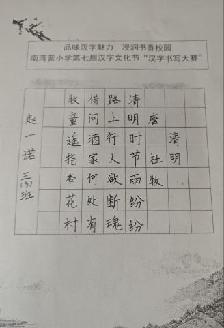 品味汉字魅力 浸润书香校园
小学第七届汉字文化节“汉字书写大赛”
清明
唐 杜牧
清明时节雨纷纷
路上行人欲断魂
借问酒家何处有
牧童遥指杏花村
赵一诺 三班